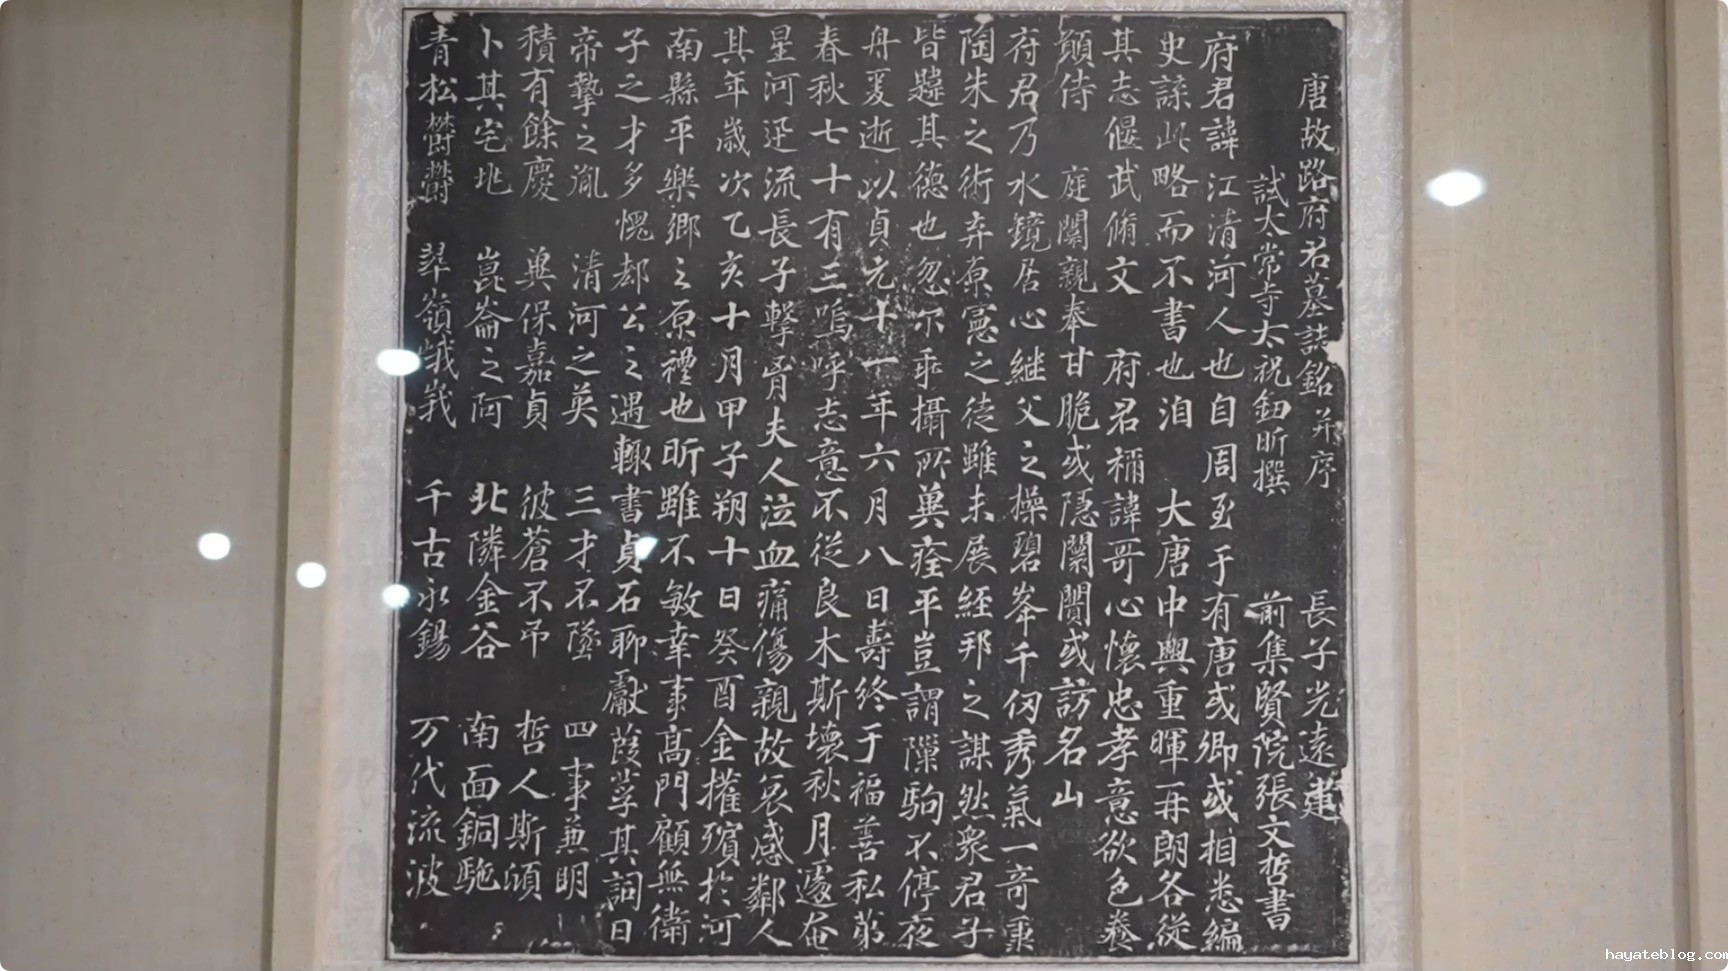 唐故路府君墓誌銘并序 長子光遠建
試太常寺太祝鈕昕撰 前集賢院張文哲書
府君諱江清河人也自周至于有唐或卿或相悉編
史諜此略而不書也洎 大唐中興重暉再朗各從
其志偃武脩文 府君禰諱哥心懷忠孝意欲色養
顓侍 庭闈親奉甘脆或隱闤闠或訪名山
府君乃水鏡居心継父之操碧峯千仞秀氣一奇稟
陶朱之術弃原憲之徒雖未展經邦之謀然衆君子
皆韙其德也忽尓乖攝所冀痊平豈謂隟駒不停夜
舟夐逝以貞元十一年六月八日壽終于福善私苐
春秋七十有三嗚呼志意不從良木斯壞秋月遽奄
星河迅流長子擊胷夫人泣血痛傷親故哀感鄰人
其年嵗次乙亥十月甲子朔十日癸酉金攉殯扵河
南縣平樂鄉之原禮也昕雖不敏幸事高門顧無衛
子之才多愧郄公之遇輙書貞石聊獻葭莩其詞曰
帝摯之胤 清河之英 三才不墜 四事兼明
積有餘慶 與保嘉貞 彼蒼不弔 哲人斯傾
卜其宅兆 崑崙之阿 北隣金谷 南面銅駞
青松欝欝 翠嶺峩峩 千古永錫 万代流波
hayateblog.com